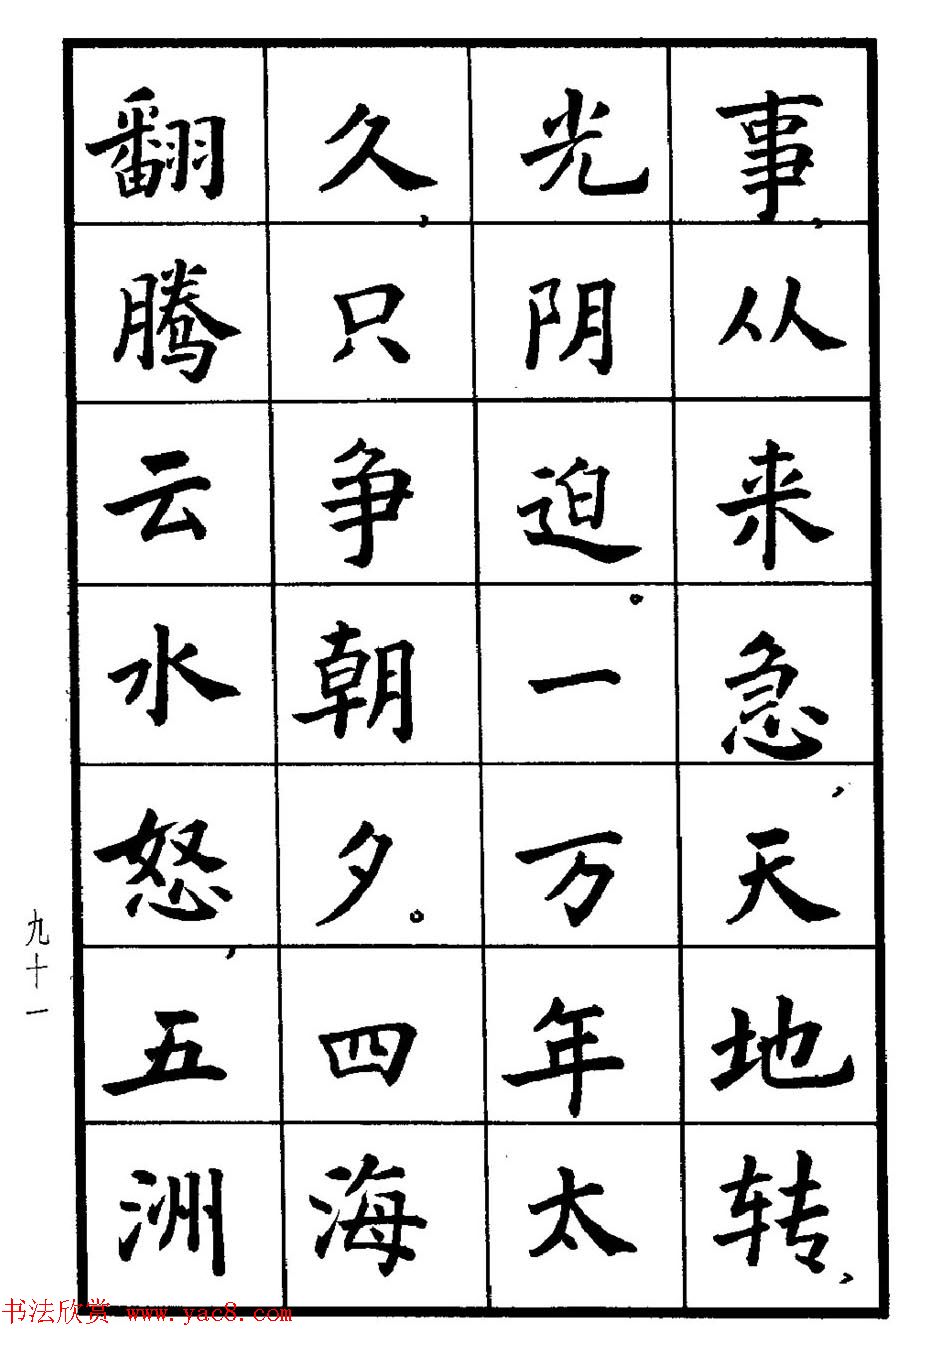 事，从来急，天地转，
光阴迫。一万年太
久，只争朝夕。四海
翻腾云水怒，五洲
九十一
书法欣赏 www.yac8.com